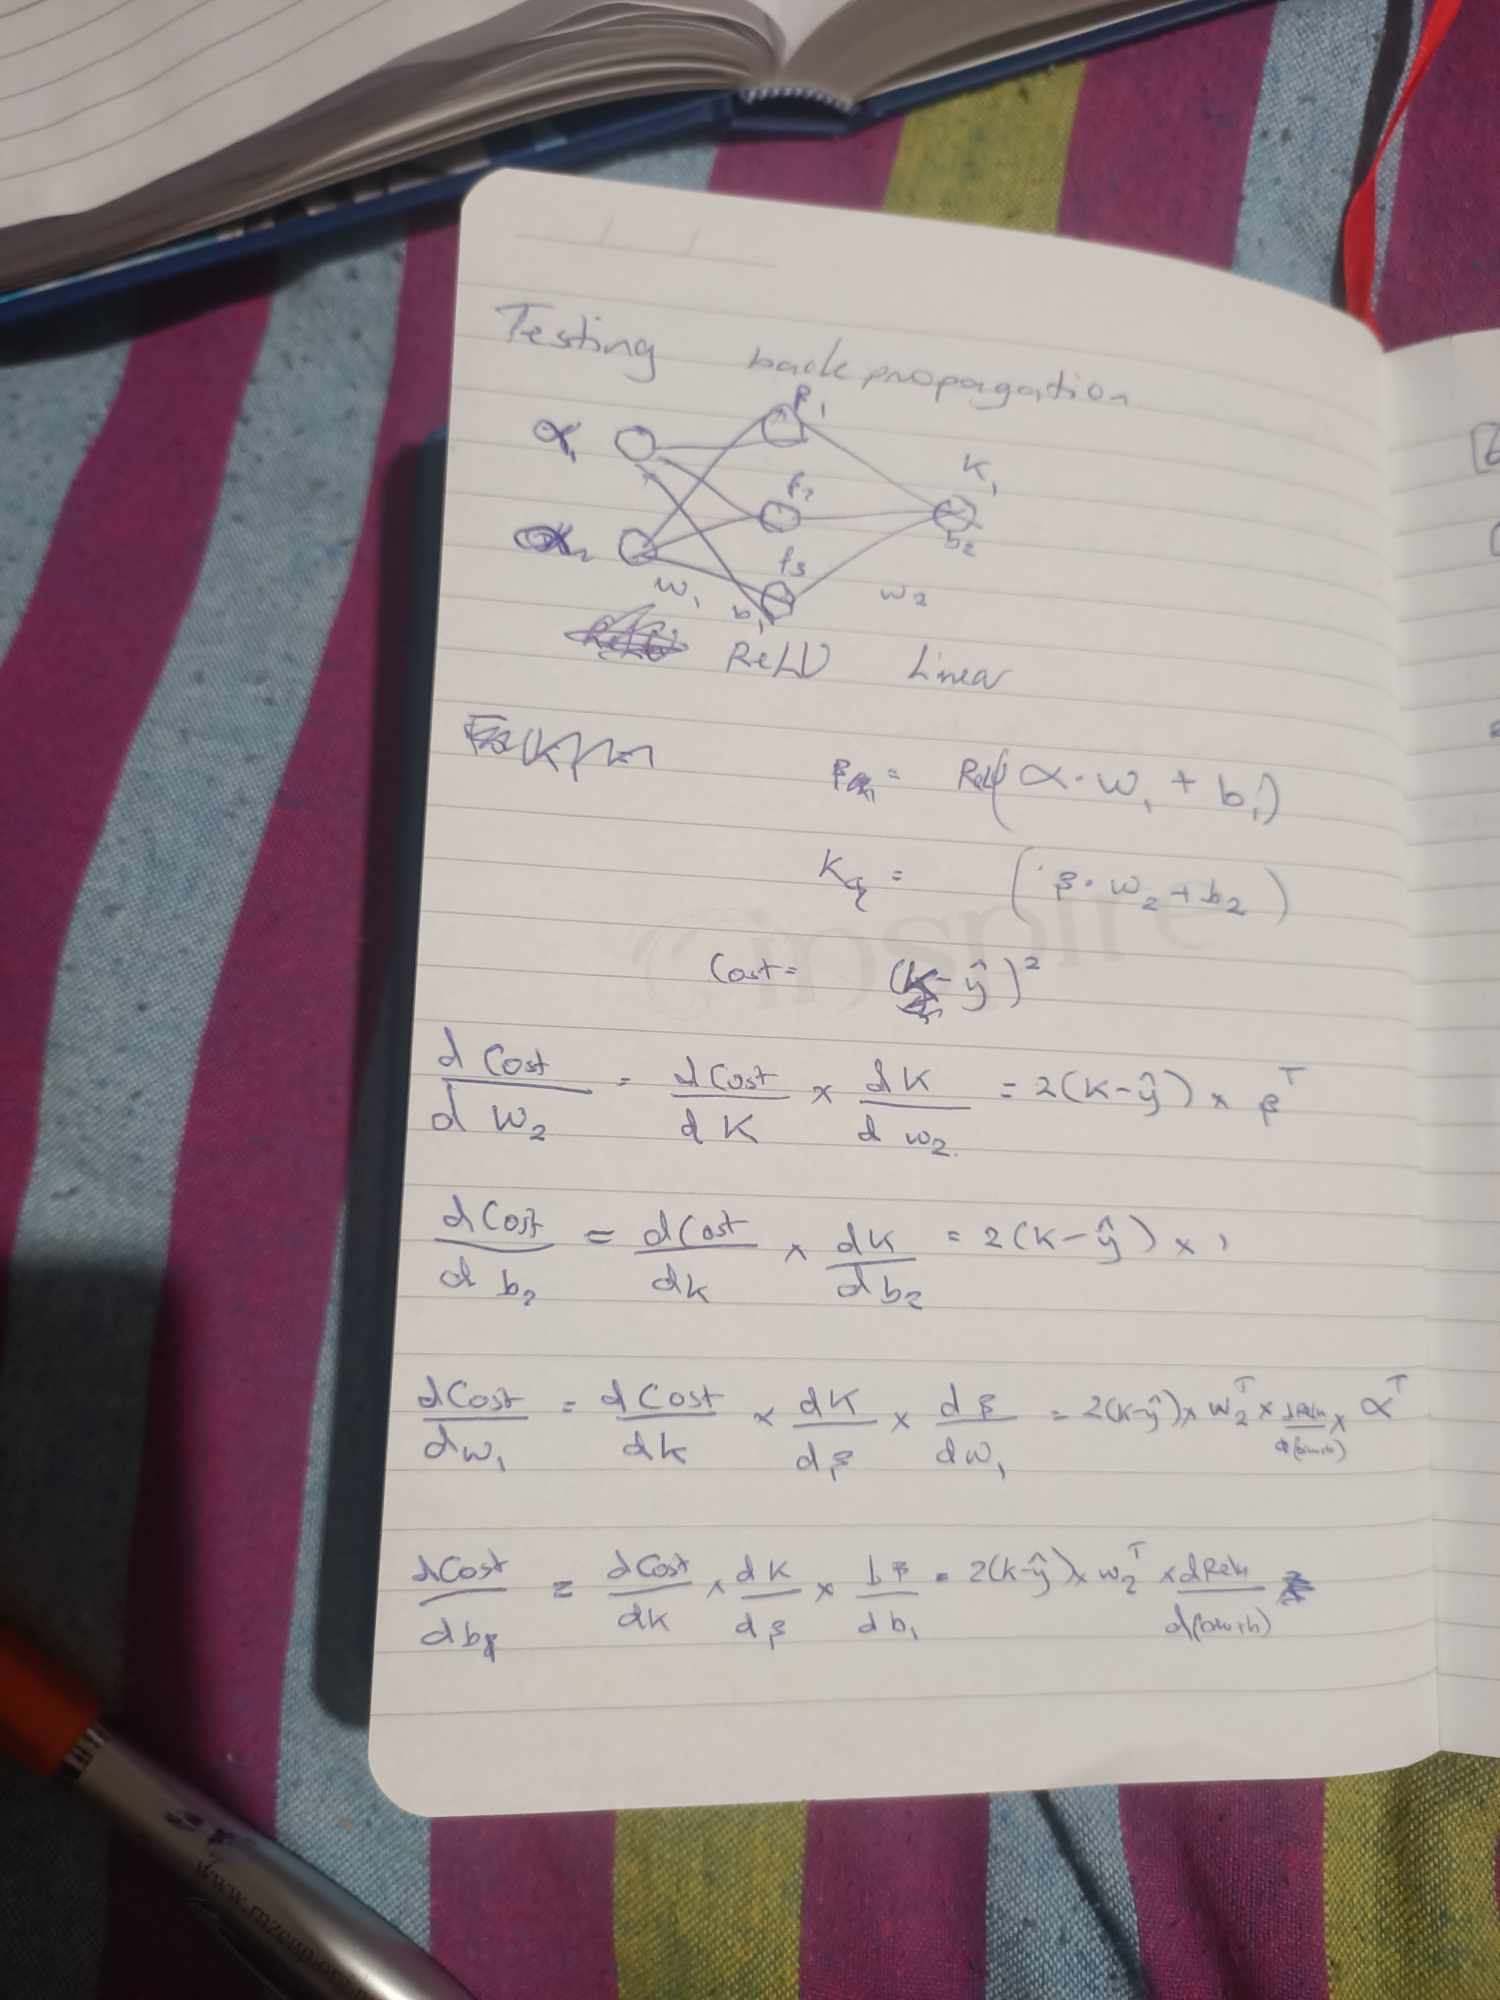 Testing backpropagation
α₁ β₁
K₁
β₂
α₂ b₂
β₃
w₁ b₁ w₂
ReLU Linear
β = ReLU(α·w₁ + b₁)
K = (β·w₂ + b₂)
Cost = (K-ŷ)²
dCost/dw₂ = dCost/dK × dK/dw₂ = 2(K-ŷ) × βᵀ
dCost/db₂ = dCost/dK × dK/db₂ = 2(K-ŷ) × 1
dCost/dw₁ = dCost/dK × dK/dβ × dβ/dw₁ = 2(K-ŷ) × w₂ᵀ × dRelu/ × αᵀ
dCost/db = dCost/dK × dK/dβ × bβ/db₁ = 2(K-ŷ) × w₂ᵀ × dRelu/
inspire